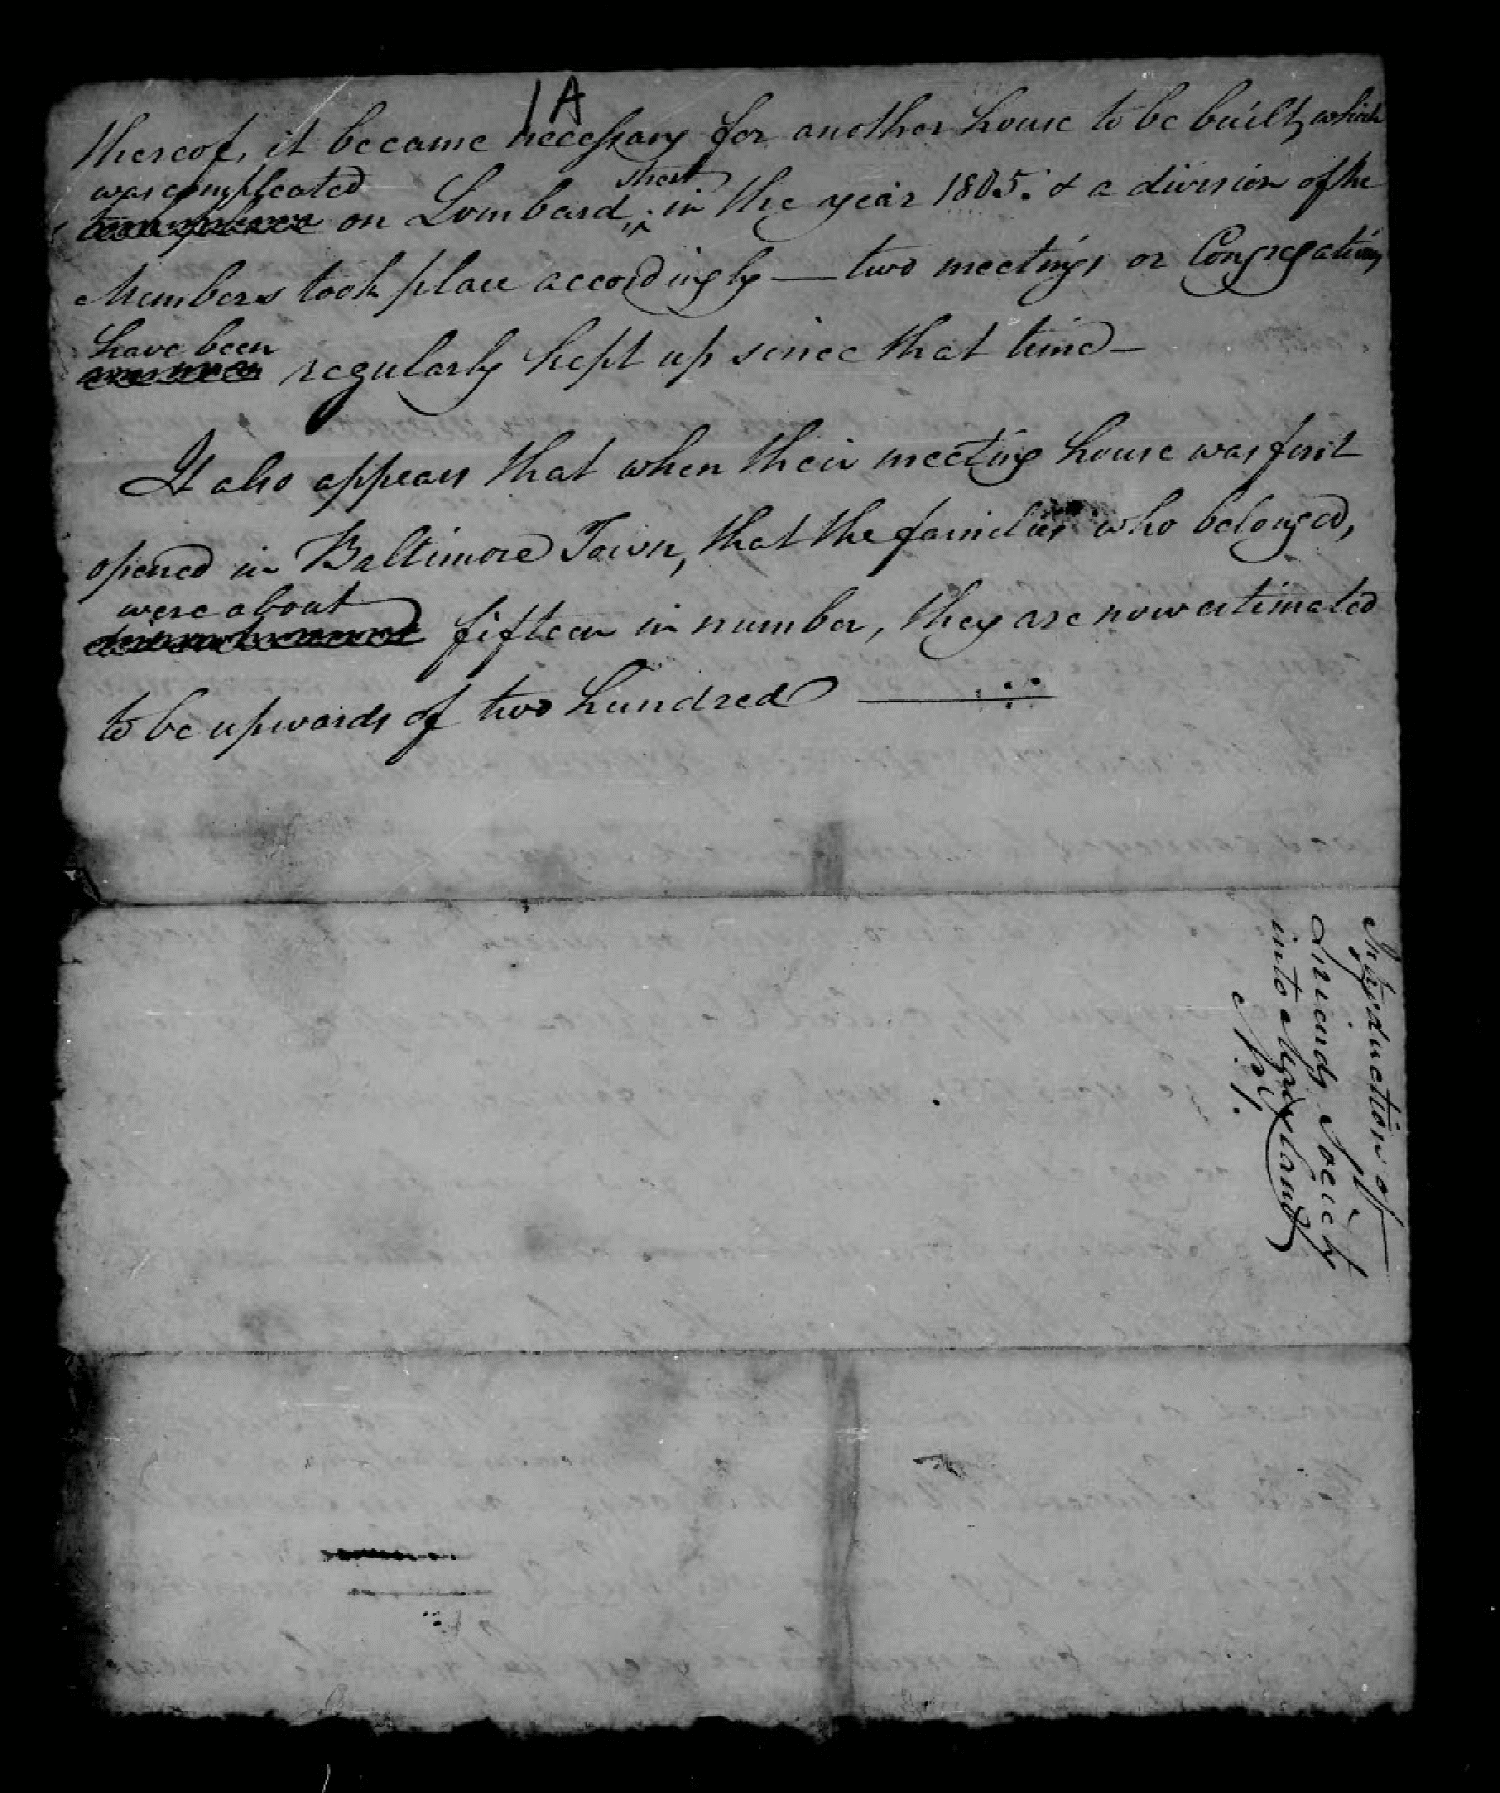 1A
thereof, it became necessary for another house to be built, which
was compleated
on Lombard street in the year 1805. & a division of the
Members took place accordingly — two meetings or Congregations
have been
regularly kept up since that time —
It also appears that when their meeting house was first
opened in Baltimore Town, that the families who belonged,
were about
fifteen in number, they are now estimated
to be upwards of two hundred
Introduction of
Friends Society
into Maryland
No. 1.